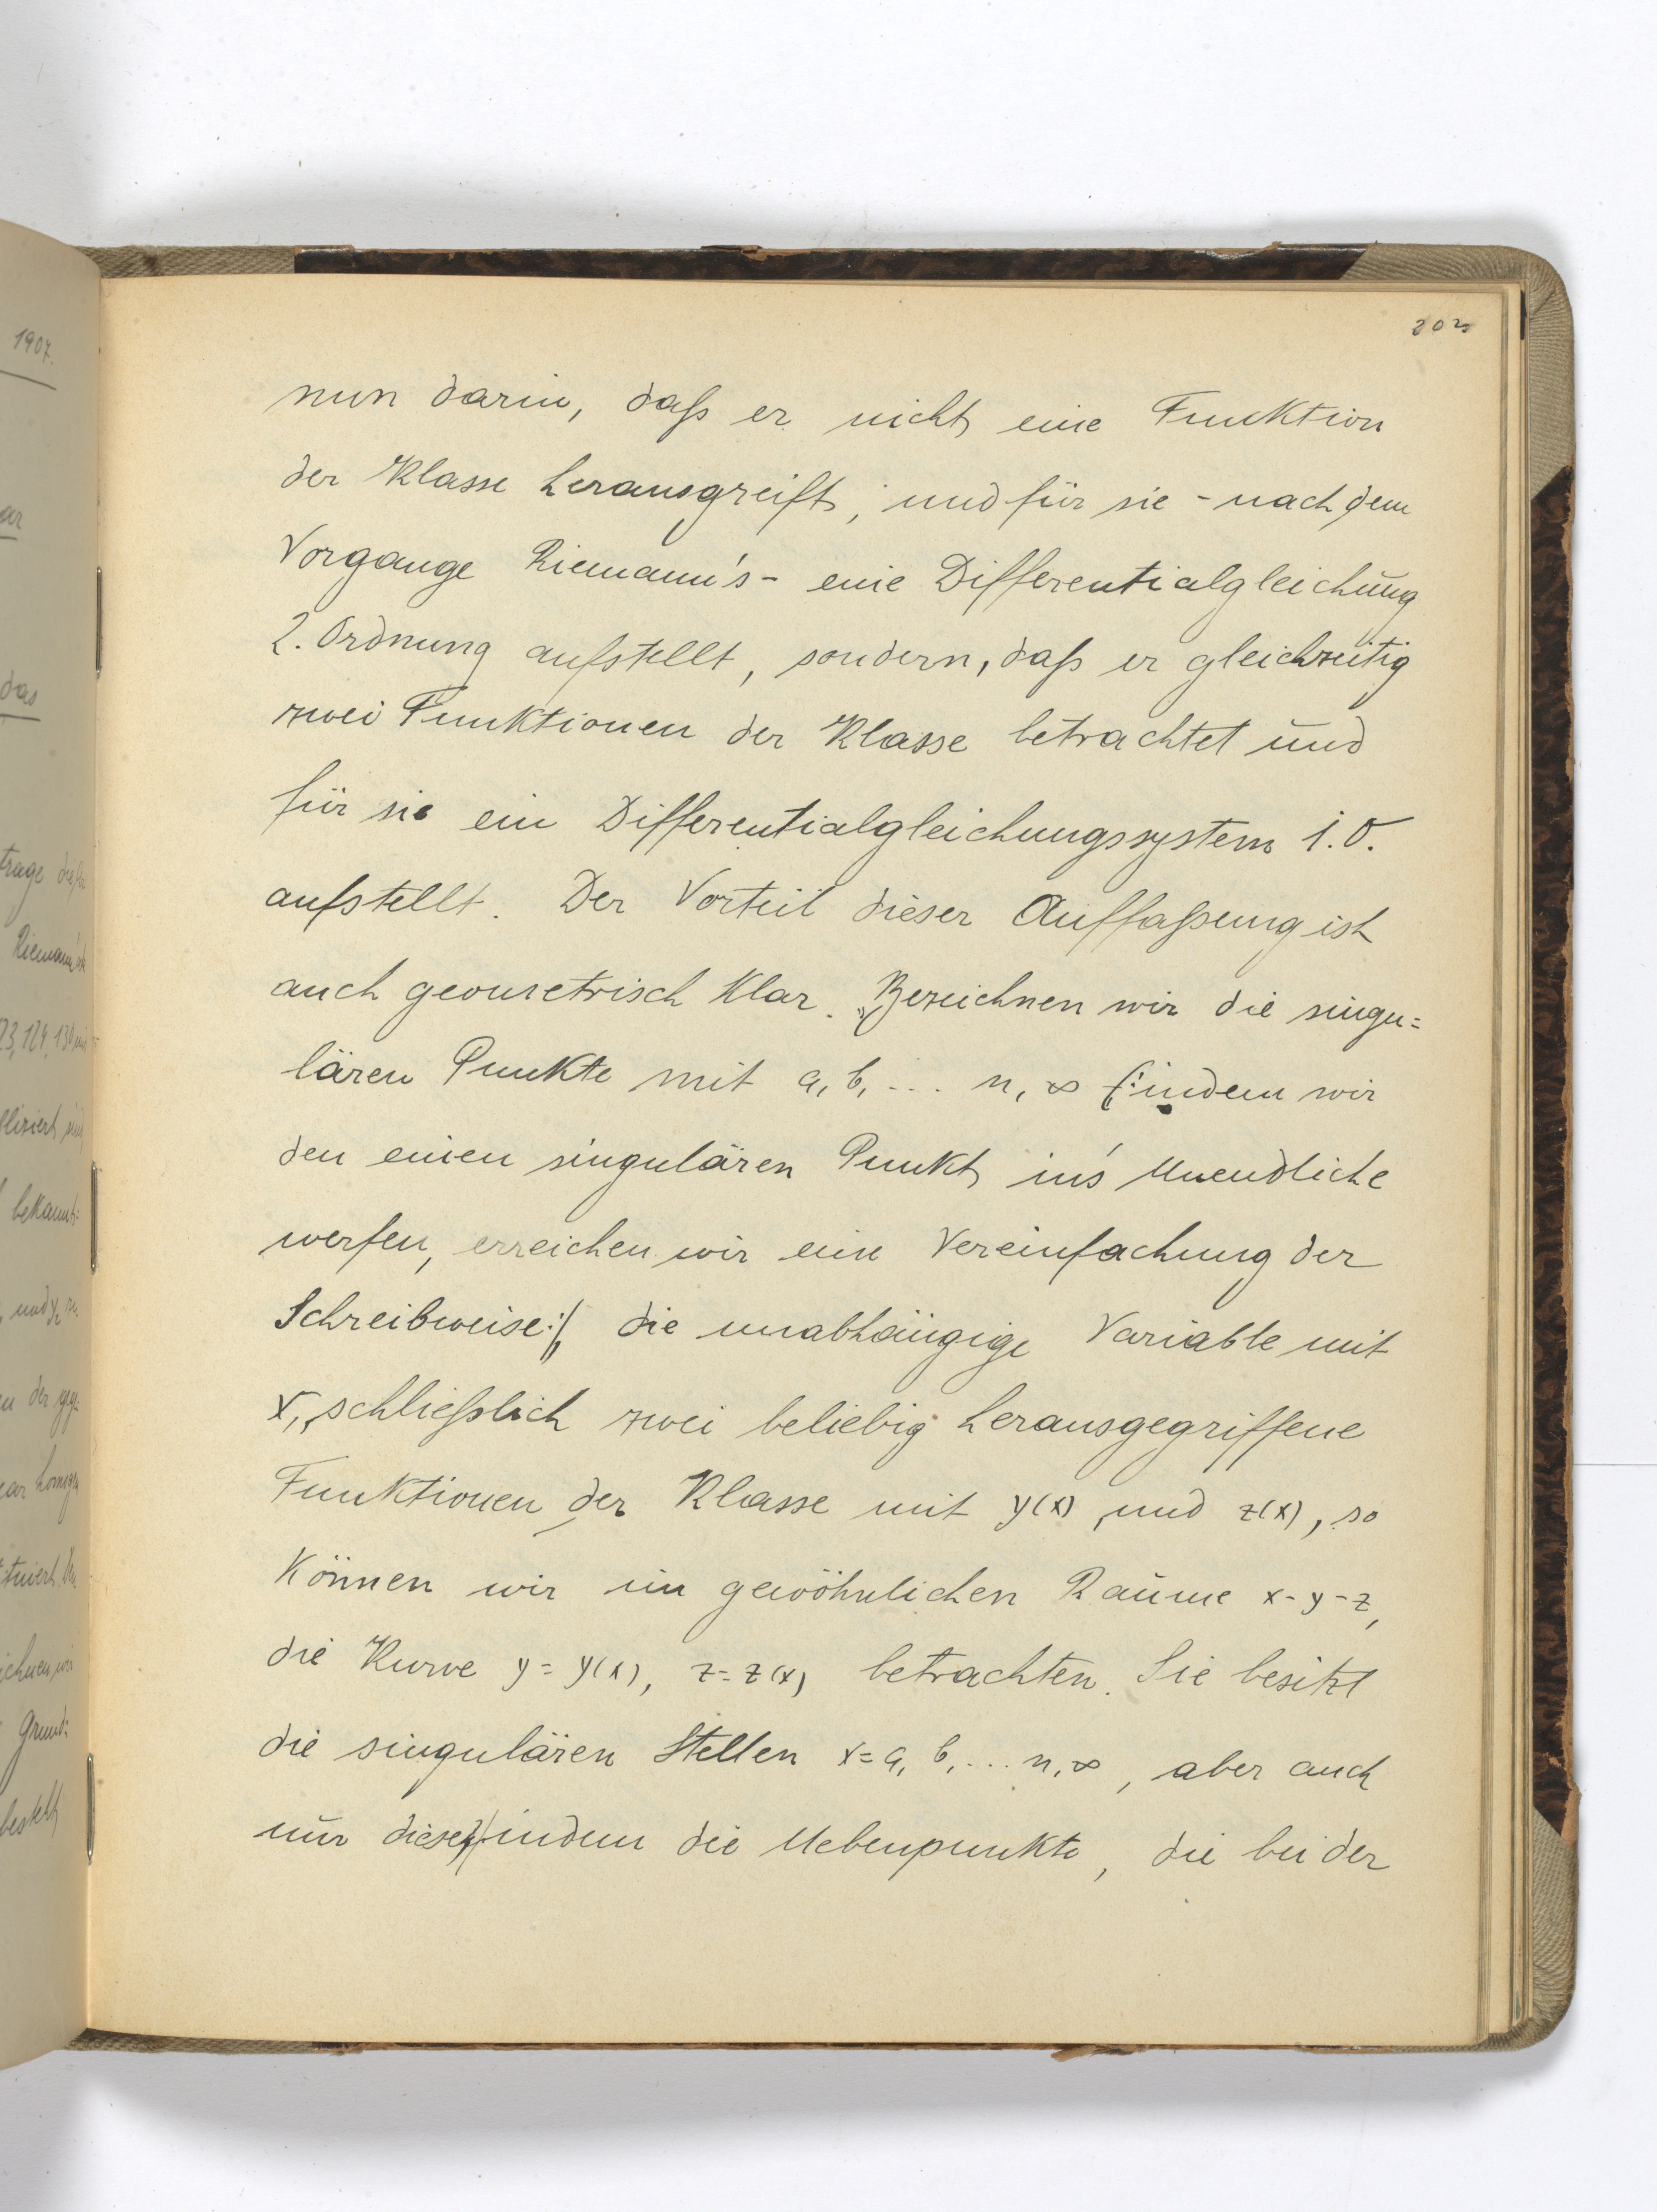 1907.
202
nun darin, daß er nicht eine Funktion
der Klasse herausgreift, und für sie - nach dem
Vorgange Riemann's - eine Differentialgleichung
2. Ordnung aufstellt, sondern, daß er gleichzeitig
zwei Funktionen der Klasse betrachtet und
für sie ein Differentialgleichungssystem 1. O.
aufstellt. Der Vorteil dieser Auffaßung ist
auch geometrisch klar. Bezeichnen wir die singu=
lären Punkte mit a, b, ... n, ∞ (: indem wir
den einen singulären Punkt in's Unendliche
werfen, erreichen wir eine Vereinfachung der
Schreibweise :), die unabhängige Variable mit
x, schließlich zwei beliebig herausgegriffene
Funktionen der Klasse mit y(x) und z(x), so
können wir im gewöhnlichen Raume x-y-z,
die Kurve y = y(x), z = z(x) betrachten. Sie besitzt
die singulären Stellen x = a, b, ... n, ∞, aber auch
nur diese, indem die Nebenpunkte, die bei der